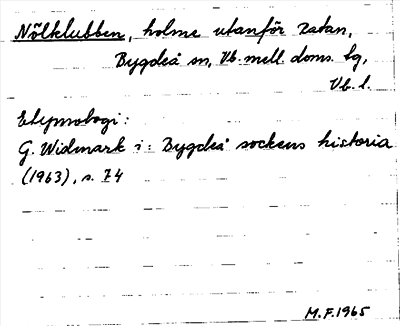 Nölklubben, holme utanför Ratan,
Bygdeå sn, Vb. mell. doms. tg,
Vb. l.
Etymologi:
G. Widmark i: Bygdeå sockens historia
(1963), s. 74
M.F. 1965